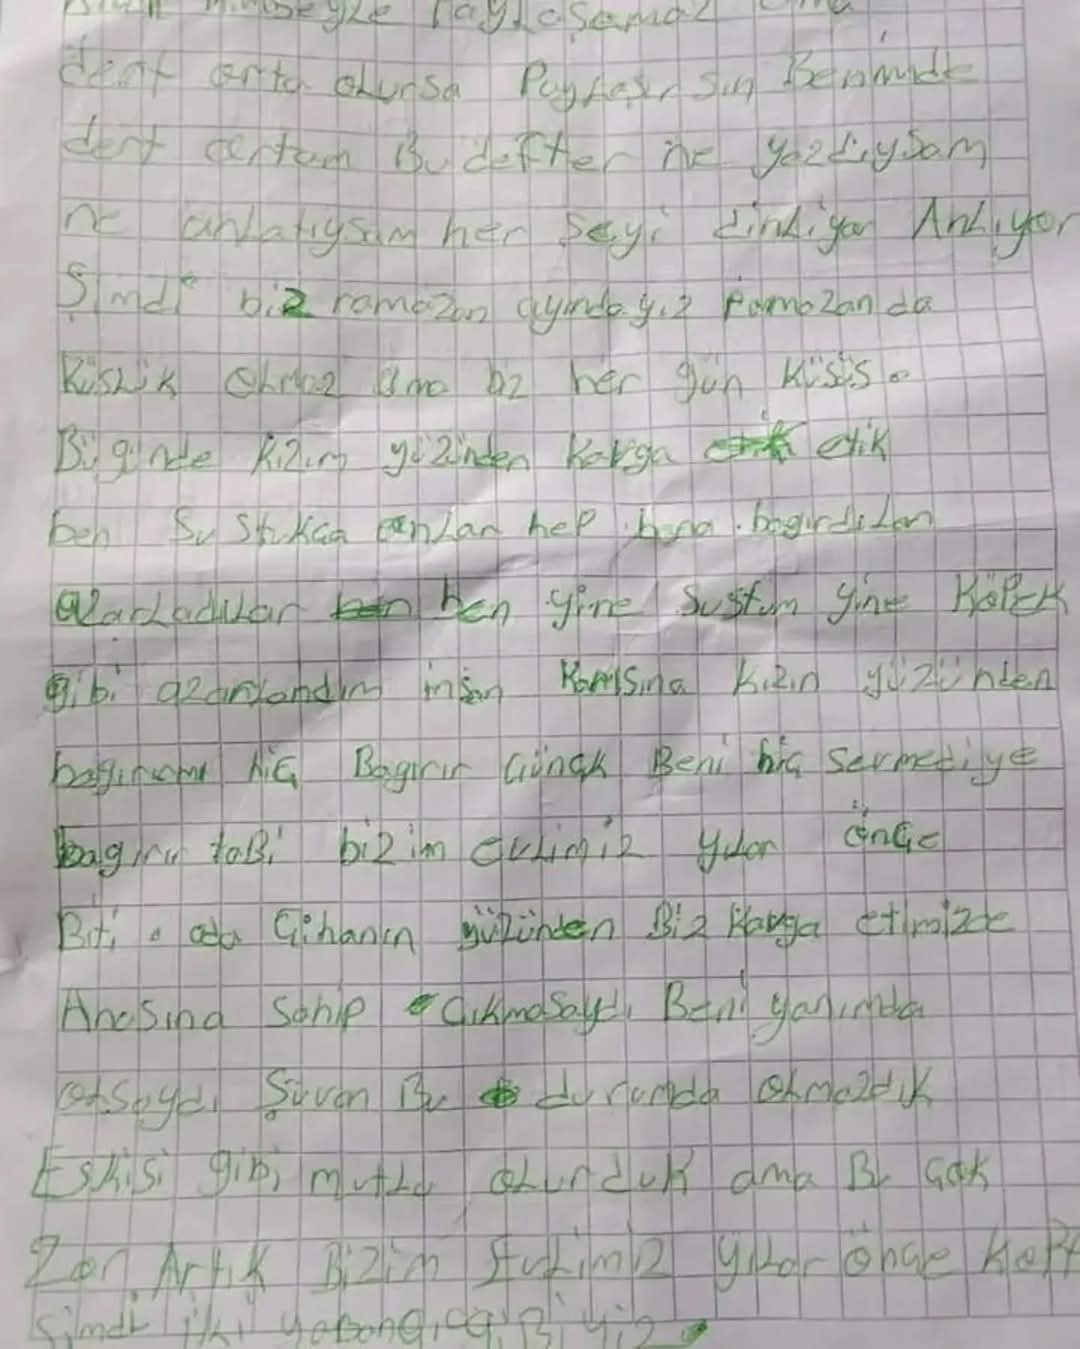 dert orta olursa Paylaşırsın Benimde
dert ortam Bu defter ne yazdıysam
ne anlatıysam her Seyi dinliyor Anlıyor
Şimdi biz ramazan ayındayız Ramazanda
Küslük olmaz ama bz her gün Küsüs.
Bügünde Kızım yüzünden Kavga etik
ben Sustukca onlar hep bana bagırdılar
azarladılar ben yine sustum yine KöPek
gibi azarlandım insan Karısına Kızın yüzünden
hiç Bagırır Günçk Beni hiç Sevmediye
bagırır taBi bizim evlimiz yılar önçe
Biti. oda Cihanın yüzünden Biz Kavga etimizde
Anasına Sahip Cıkmasaydı Beni yanımda
olsaydı Şuvan Bu durumda olmazdık
Eskisi gibi mutlu olurduk ama Bu çok
Zor Artık Bizim Evlimiz yılar önçe
Şimdi iki yabançı giBiyiz